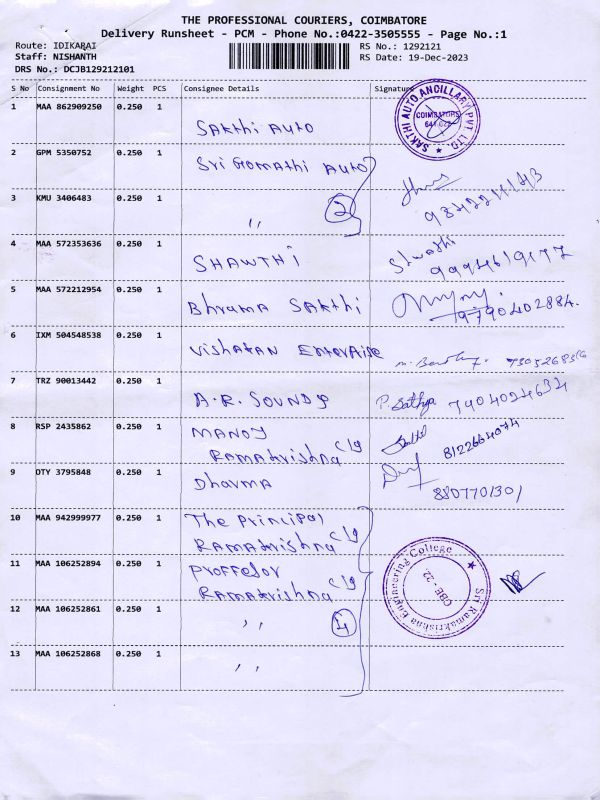 THE PROFESSIONAL COURIERS, COIMBATORE
Delivery Runsheet - PCM - Phone No.:0422-3505555 - Page No.:1
Route: IDIKARAI
Staff: NISHANTH
DRS No.: DCJB129212101
RS No.: 1292121
RS Date: 19-Dec-2023
S No Consignment No Weight PCS Consignee Details Signature
1 MAA 862909250 0.250 1
Sakthi Auto
SAKTHI AUTO ANCILLARY PVT. LTD.
COIMBATORE
2 GPM 5350752 0.250 1
Sri Gomathi Auto
3 KMU 3406483 0.250 1
,, 2
4 MAA 572353636 0.250 1
SHAWTHI
Swathi
5 MAA 572212954 0.250 1
Bhrama Sakthi
9790402884.
6 IXM 504548538 0.250 1
Vishakan Enterprise
7 TRZ 90013442 0.250 1
A.R. SOUNDS
P. Sathya 7404024634
8 RSP 2435862 0.250 1
MANOJ
Ramakrishna Clg
8122664074
9 OTY 3795848 0.250 1
Dharma
8807701301
10 MAA 942999977 0.250 1
The Principal
Ramakrishna Clg
11 MAA 106252894 0.250 1
Proffesor
Ramakrishna Clg
Sri Ramakrishna Engineering College
CBE - 22.
12 MAA 106252861 0.250 1
,, 4
13 MAA 106252868 0.250 1
,,